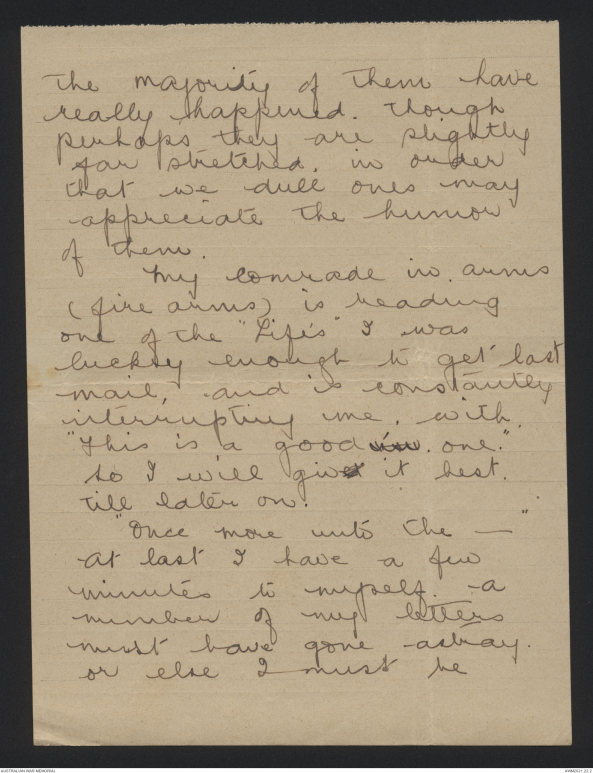 The majority of them have
really happened. though
perhaps they are slightly
far stretched, in order
that we dull ones may
appreciate the humor
of them.
My comrade in arms
(fire arms) is reading
one of the "Life's" I was
lucksy enough to get last
mail, and is constantly
interrupting me, with
"This is a good one."
so I will give it best.
till later on.
"Once more unto the —"
At last I have a few
minutes to myself. a
number of my letters
must have gone astray.
or else I must be
AUSTRALIAN WAR MEMORIAL